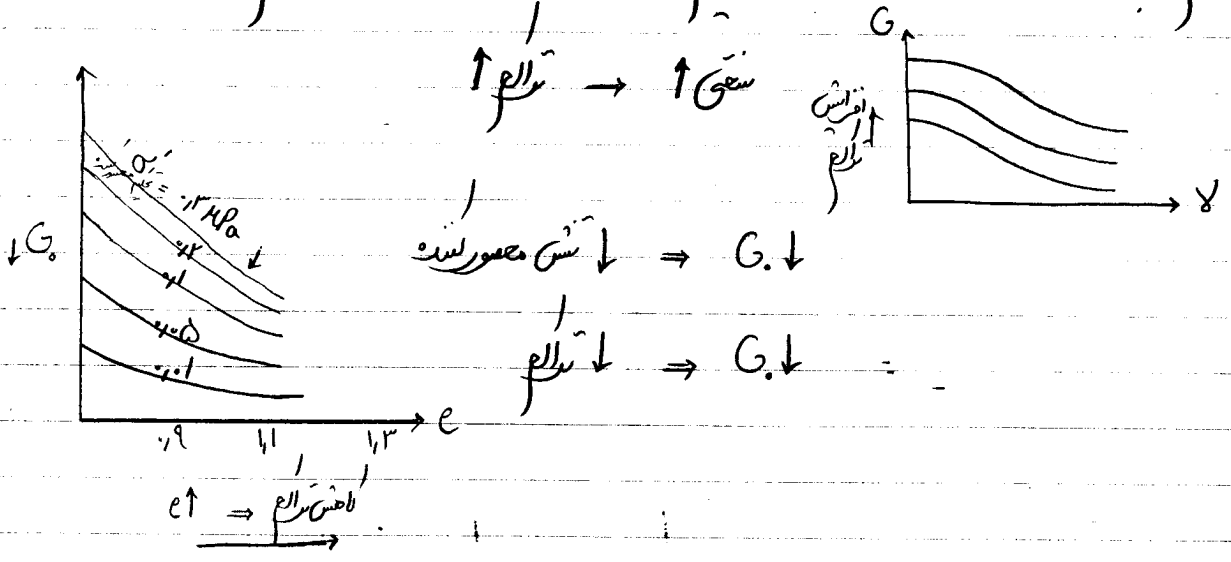 تراکم ↑ → سختی ↑
G
افزایش
تراکم ↑
γ
= ۰٫۳ MPa
۰٫۲
۰٫۱
۰٫۰۵
۰٫۰۱
↓ G₀
تنش محصور کننده ↓ ⇒ G₀ ↓
تراکم ↓ ⇒ G₀ ↓
e
۰٫۹ ۱٫۱ ۱٫۳
e↑ ⇒ کاهش تراکم